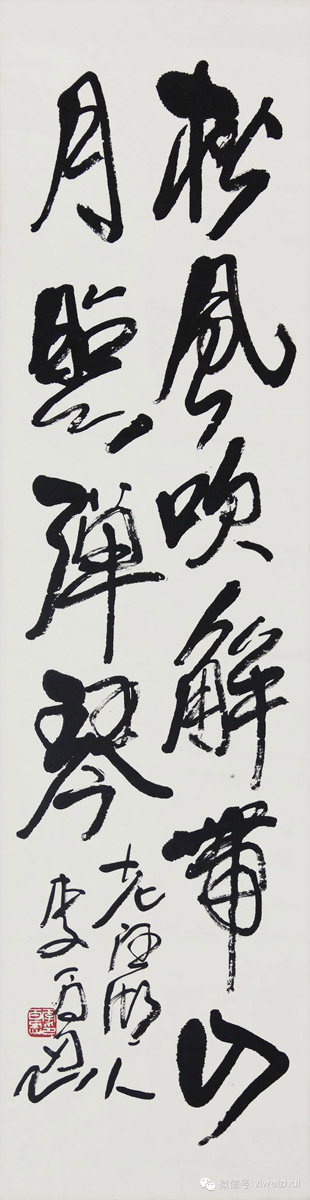 松風吹解帶山
月照彈琴
李百忍
微信号: ziweizhai